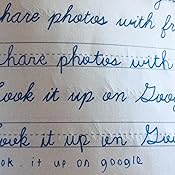 share photos with fr
share photos with
Look it up on Goog
Look it up on Goo
ook it up on google